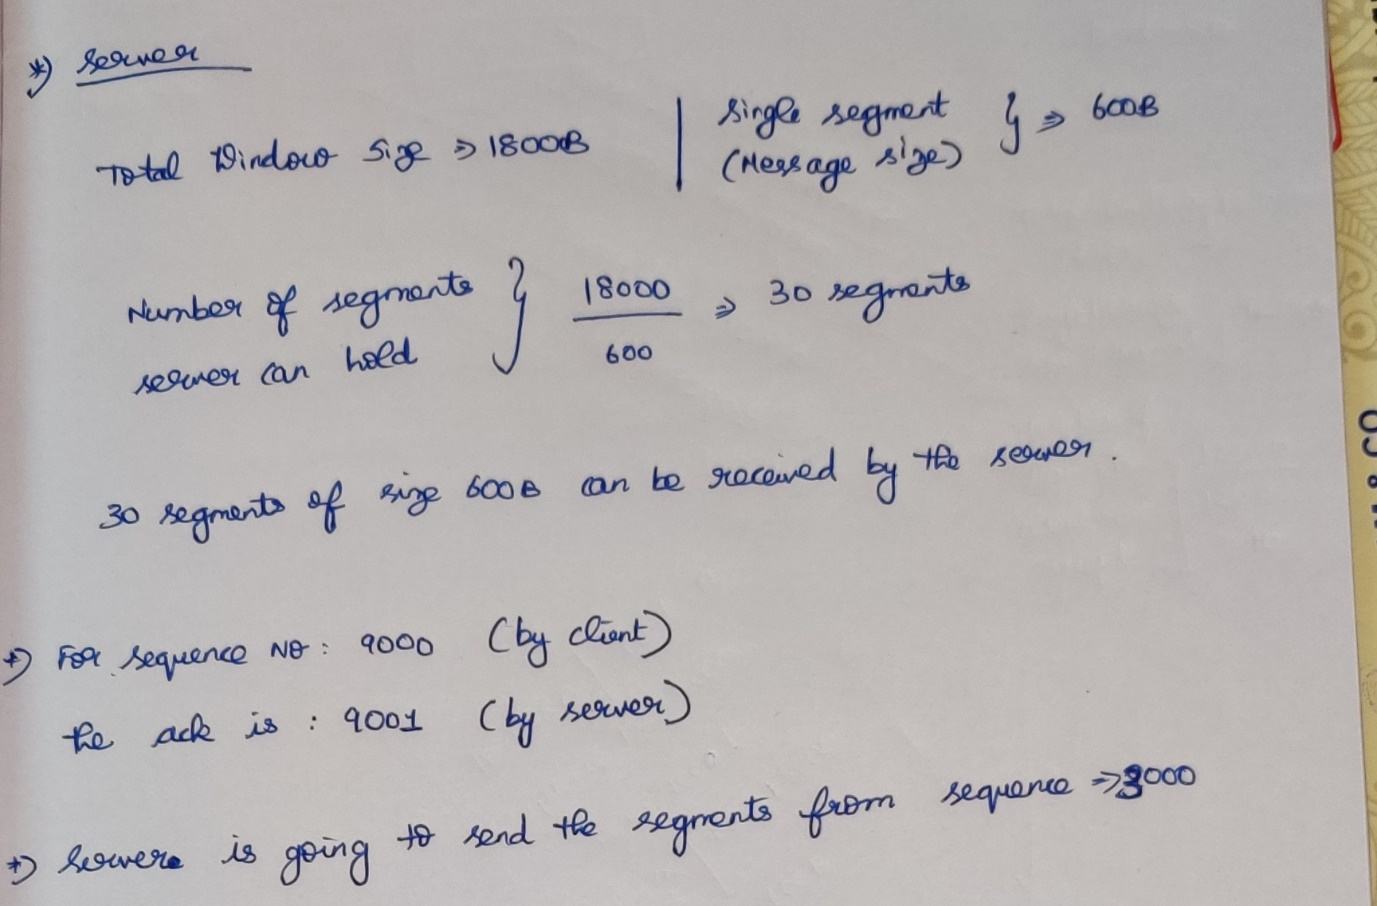 *) Server
Total Window Size ⇒ 18000B | Single segment (Message size) } ⇒ 600B
Number of segments server can hold } 18000 / 600 ⇒ 30 segments
30 segments of size 600B can be received by the server.
*) For sequence NO : 9000 (by client)
the ack is : 9001 (by server)
*) Servere is going to send the segments from sequence ⇒ 3000